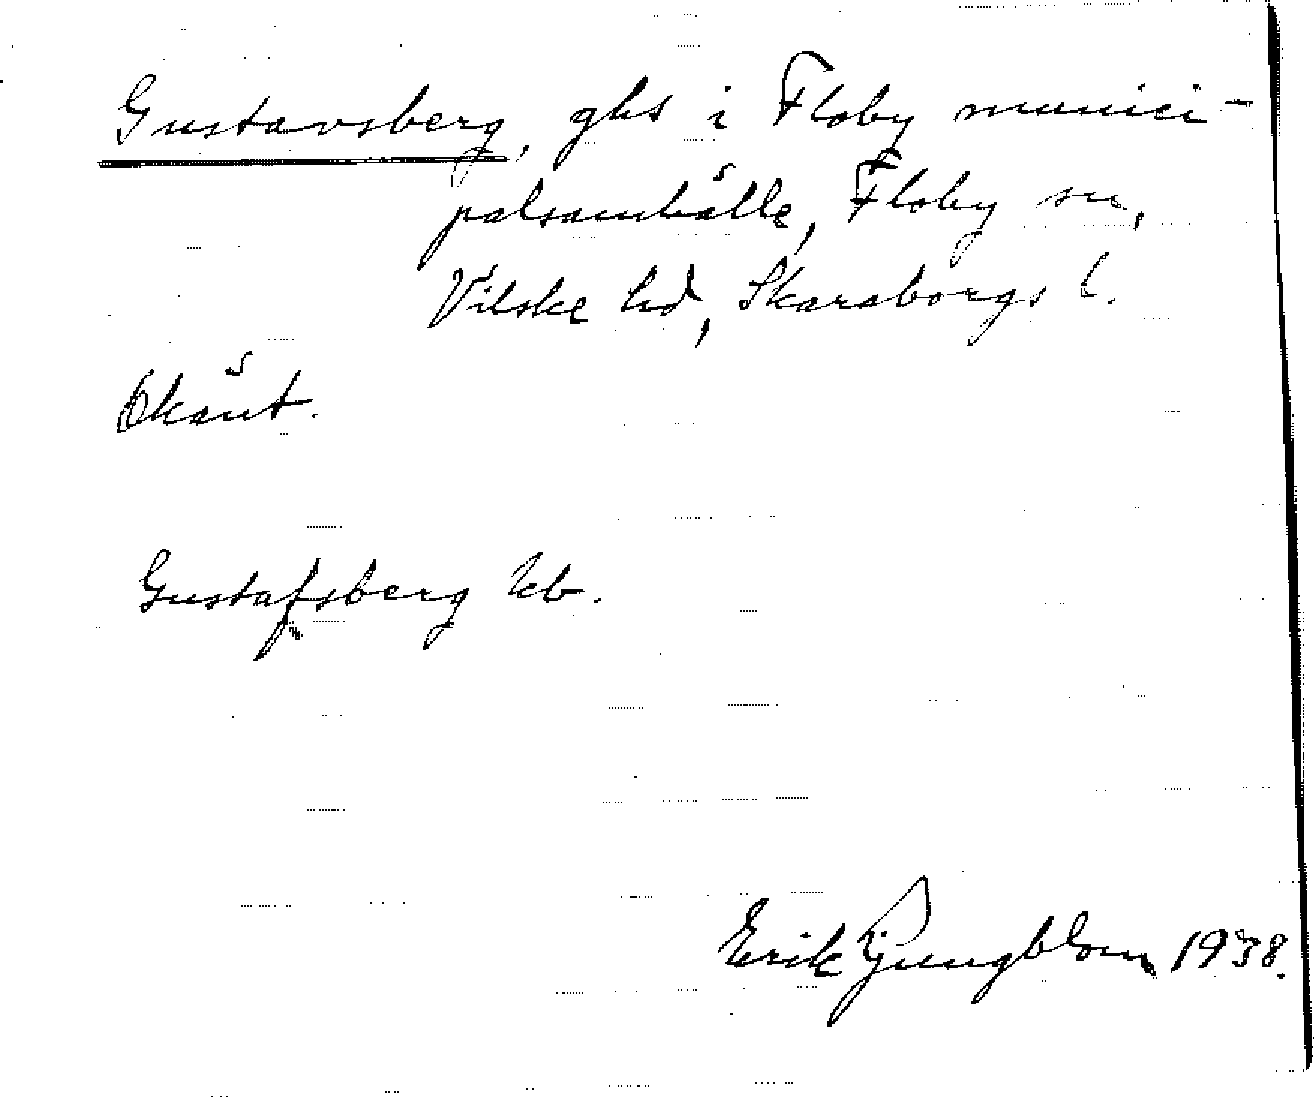 Gustavsberg, ghs i Floby munici-
palsamhälle, Floby sn,
Vilske hd, Skaraborgs l.
Okänt.
Gustafsberg Kb.
Erik Ljungblom 1938.